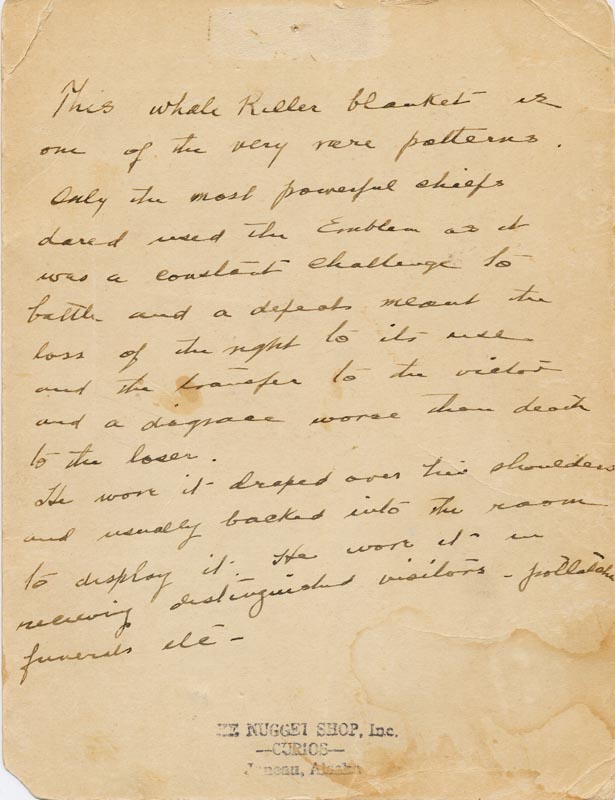 This whale Killer blanket is
one of the very rare patterns.
Only the most powerful chiefs
dared used the Emblem as it
was a constant challenge to
battle and a defeat meant the
loss of the right to its use
and the transfer to the victor
and a disgrace worse than death
to the loser.
He wore it draped over his shoulders
and usually backed into the room
to display it. He wore it in
recieving distinguished visitors - potlatche
funerals etc -
HE NUGGET SHOP, Inc.
—CURIOS—
Juneau, Alaska